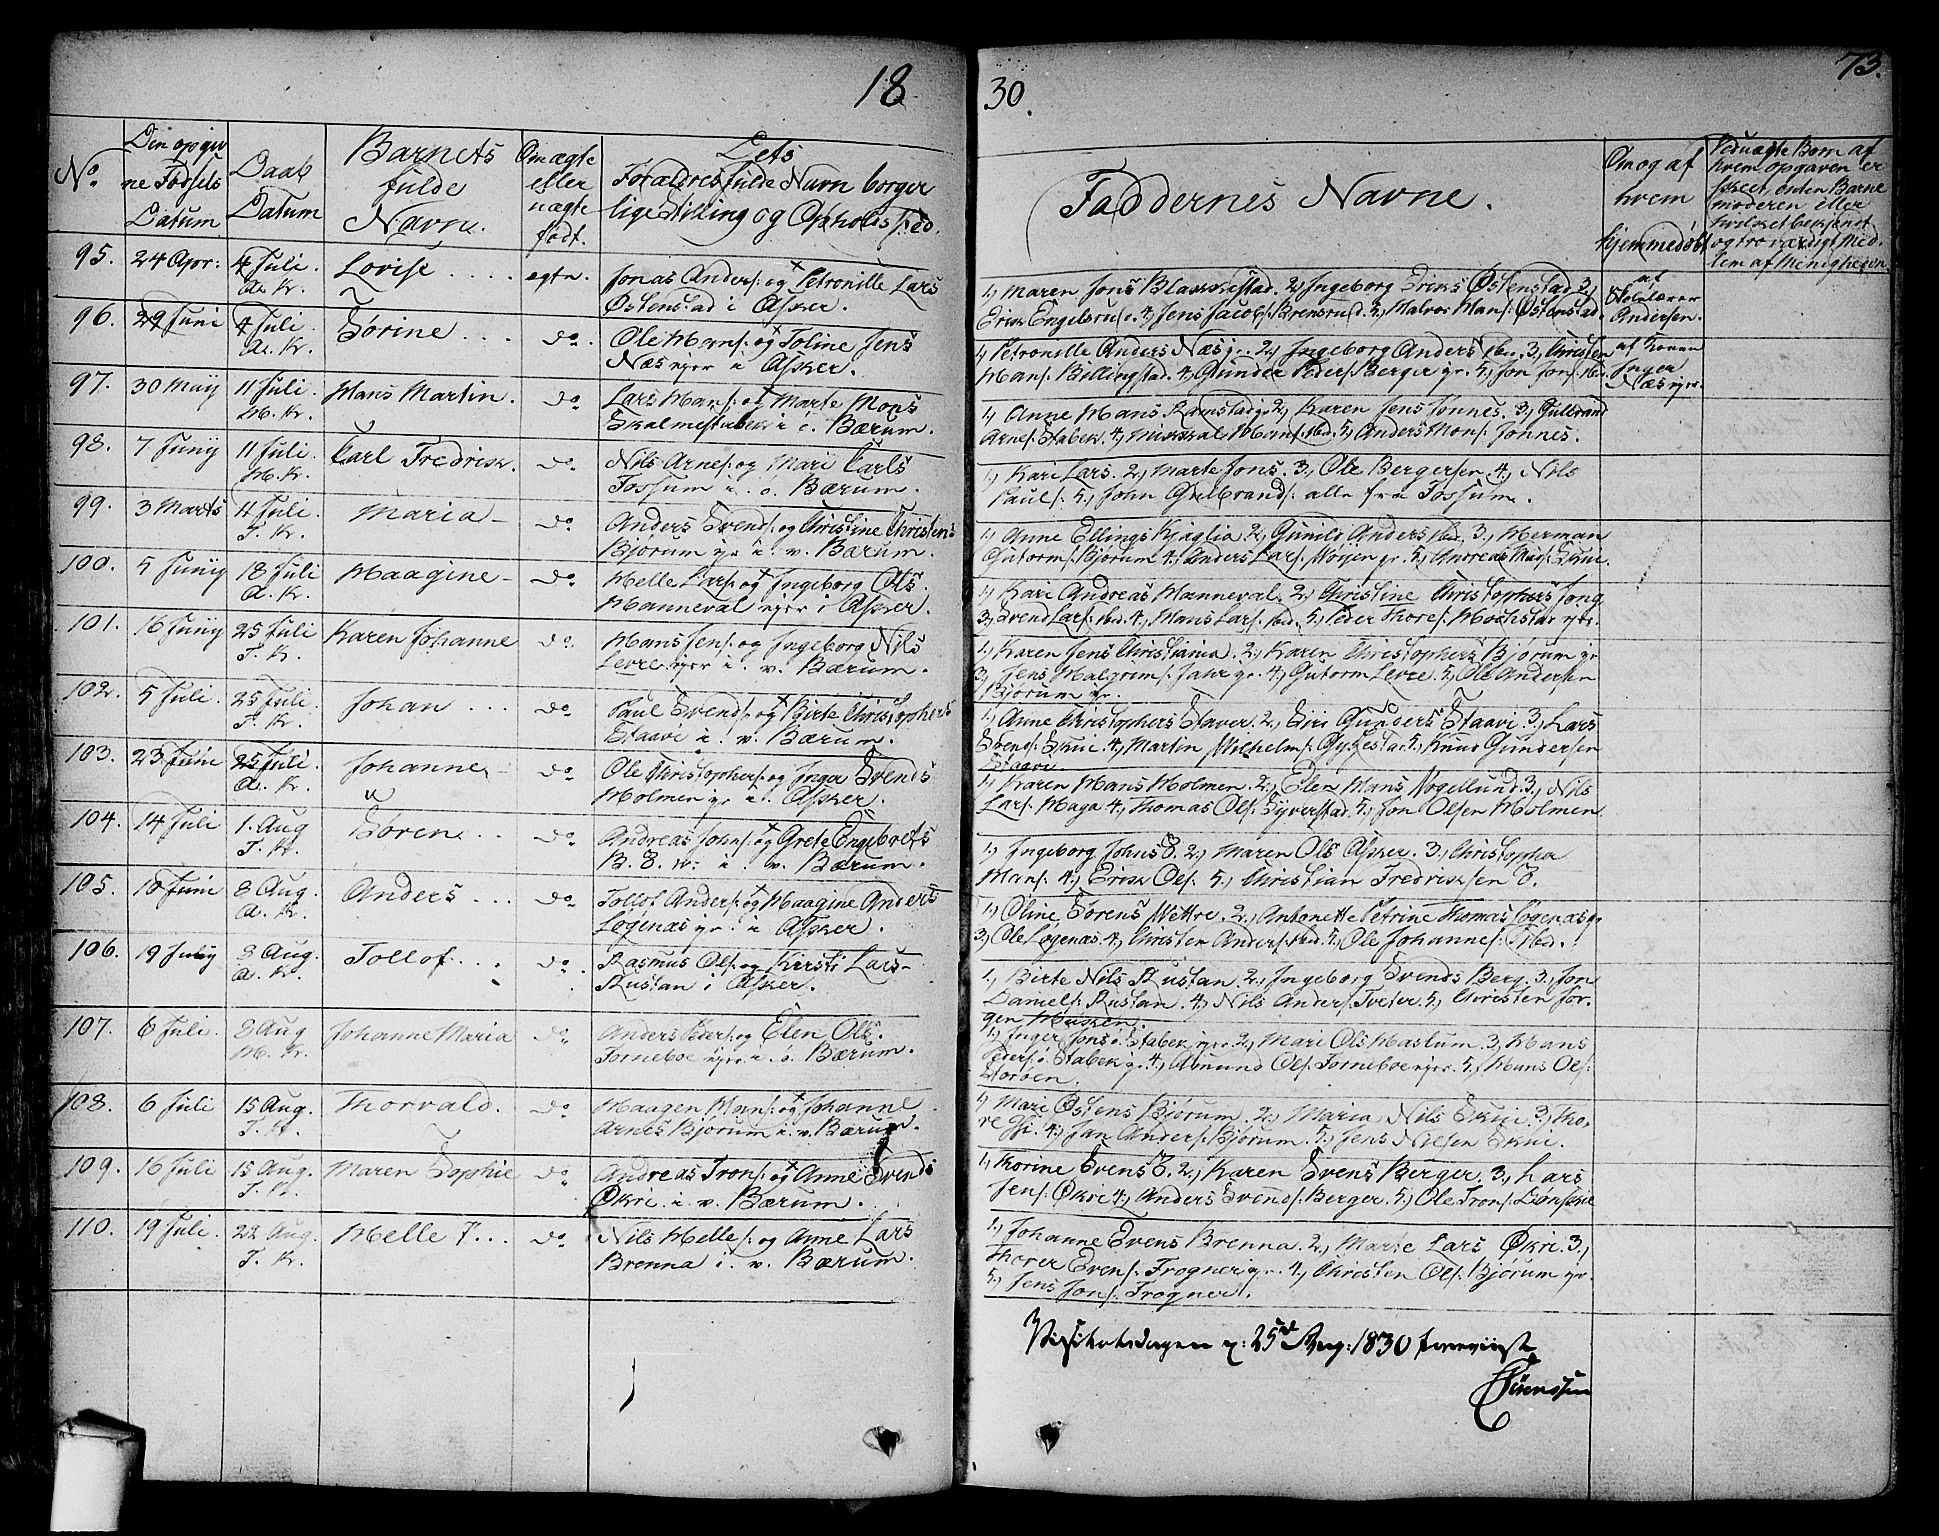 18
30.
73.
No.
Den opgiv
ne Fødsels
Datum
Daab
Datum
Barnets
fulde
Navn.
Om ægte
eller
uægte
født.
Dets
Forældres fulde Navn borger
lige Stilling og Opholds sted.
Faddernes Navne.
Om og af
hvem
hjemmedøbt
Veduægte Børn af
hvem opgaven er
skeet, enten Barne
moderen eller
hvilket bekjendt
og troværdigt Med-
lem af Menigheden.
95. 24 Apr: 4 Juli. A. K. Lovise .... egte.
Jonas Anders: og Petronille Lars
Østenstad i Asker.
1, Maren Jons Blakkestad. 2, Ingeborg Eriks Østenstad 3,
Erik Engelsrud. 4, Jens Jacobs: Brensrud. 5, Halvor Hans: Østenstad.
af
Skolelærer
Andersen.
96. 29 Juni 4 Juli. A. K. Sørine ... do.
Ole Hans: og Toline Jens
Næs ejer i Asker.
1, Petronelle Anders Næs gr. 2, Ingeborg Anders ibd. 3, Christen
Hans: Billingstad. 4, Gunder Peders: Berger gr. 5, Jon Jons: ibd.
af Konen
Inger
Næs ejer.
97. 30 May 11 Juli. H. Kr. Hans Martin. do
Lars Hans: og Marte Mons
Skalmestabek i ö. Bærum.
1, Anne Hans Ramstad gr. 2, Karen Jens Jonnes. 3, Gulbrand
Arnes: Stabek. 4, Mikkal Hans: ibd. 5, Anders Mons: Jonnes.
98. 7 Juny 11 Juli. H. Kr. Carl Fredrik. do
Nils Arnes: og Mari Carls
Fossum i. ö. Bærum.
1, Kari Lars. 2, Marte Jons. 3, Ole Bergersen 4, Nils
Pauls: 5, John Gulbrands: alle fra Fossum.
99. 3 Marts 11 Juli. T. Kr. Maria - do
Anders Svends: og Christine Christens
Bjørum gr i. v. Bærum.
1, Anne Ellings Kjaglia 2, Gunild Anders ibd. 3, Herman
Gutorms: Bjørum 4, Anders Lars: Horjen gr. 5, Andreas Mads: Skui.
100. 5 Juny 18 Juli A. Kr. Haagine - do
Helle Lars: og Ingeborg Ols
Hanneval ejer i Asker.
1, Kari Andreas Hanneval. 2, Christine Christophers Jong
3, Svend Lars: ibd. 4, Hans Lars: ibd. 5, Peder Thores: Hochstad ejer.
101. 16 Juny 25 Juli T. K. Karen Johanne do
Hans Jens: og Ingeborg Nils
Levre ejer i. v. Bærum.
1, Karen Jens Christiania. 2, Karen Christophers Bjørum gr
3, Jens Halgrims: Jahr gr. 4, Gutorm Levre. 5, Ole Andersen
Bjørum gr.
102. 5 Juli. 25 Juli. T. Kr. Johan ... do
Paul Svends: og Birte Christophers
Staavi i. v. Bærum.
1, Anne Christophers Staver. 2, Siri Gunders Staavi 3, Lars
Svends: Skui 4, Martin Wilhelms: Gykestad. 5, Knud Gundersen
Staavi.
103. 23 Juni 25 Juli. A. Kr. Johanne. - do
Ole Christophers: og Inger Svends
Holmen gr i. Asker.
1, Karen Hans Holmen. 2, Elen Hans Nøgellund. 3, Nils
Lars: Haga 4, Thomas Ols: Syverstad. 5, Jon Olsen Holmen
104. 14 Juli 1. Aug T. Kr. Søren .. do
Andreas Johns: og Grete Engebrets
B. 8. v. i. v. Bærum.
1, Ingeborg Johns 8. 2, Maren Ols Asker. 3, Christopher
Hans: 4, Erik Ols: 5, Christian Fredriksen 8.
105. 10 Juni 8 Aug. A. Kr. Anders ... do
Tollof Anders: og Haagine Anders
Løgenas gr. i Asker.
1, Oline Sørens Wettre. 2, Antonette Petrine Thomas Løgenas gr.
3, Ole Løgenas. 4, Christen Anders: ibd. 5, Ole Johannes: ibd.
106. 19 July 8 Aug. A. Kr. Tollof ... do
Rasmus Ols: og Kirsti Lars-
Rustan i Asker.
1, Birte Nils Rustan. 2, Ingeborg Svends Berg. 3, Jon
Daniels: Rustan. 4, Nils Anders: Tveter. 5, Christen Jor-
gen Husken.
107. 6 Juli. 8 Aug H. Kr. Johanne Maria do
Anders Peders: og Elen Ols.
Torneboe ejer i. ö. Bærum.
1, Inger Jons ö. Stabek ejer. 2, Mari Ols Haslum. 3, Hans
Peders: ö. Stabek gr. 4, Amund Ols: Torneboe ejer. 5, Hans Ols:
Storøen.
108. 6 Juli 15 Aug. T. Kr. Thorvald. do
Haagen Hans: og Johanne
Arnes Bjorum i. v. Bærum.
1, Mari Østens Bjørum. 2, Maria Nils Skui 3, Tho-
re 4, Jan Anders: Bjørum. 5, Jens Nilsen Skui.
109. 16 Juli 15 Aug. T. Kr. Maren Sophie do
Andreas Trons: og Anne Svends
Økri i. v. Bærum.
1, Korine Svens 8. 2, Karen Svens Berger. 3, Lars
Jens: Økri 4, Anders Svends: Berger. 5, Ole Trons: Lønsene
110. 19 Juli. 22 Aug. T. Kr. Helle 7... do
Nils Helles: og Anne Lars
Brenna i. v. Bærum.
1, Johanne Svens Brenna. 2, Marte Lars Økri. 3,
Thorer Evens: Frogner gr. 4, Christen Ols: Bjørum gr.
5, Jens Jons: Frogner.
25de Aug: 1830 foreviist